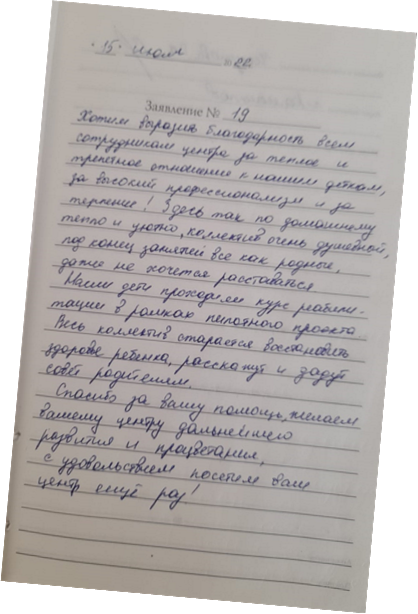 "15" июля 22
Заявление № 19
Хотим выразить благодарность всем
сотрудникам центра за теплое и
трепетное отношение к нашим деткам,
за высокий профессионализм и за
терпение! Здесь так по домашнему
тепло и уютно, коллектив очень душевный,
под конец занятий все как родные,
даже не хочется расставаться
Наши дети проходили курс реабили-
тации в рамках пилотного проекта.
Весь коллектив старается восстановить
здоровье ребенка, расскажут и дадут
совет родителям.
Спасибо за вашу помощь, желаем
вашему центру дальнейшего
развития и процветания,
с удовольствием посетим ваш
центр ещё раз!